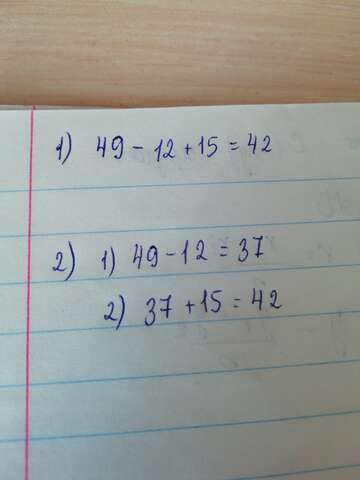 1) 49 - 12 + 15 = 42
2) 1) 49 - 12 = 37
2) 37 + 15 = 42